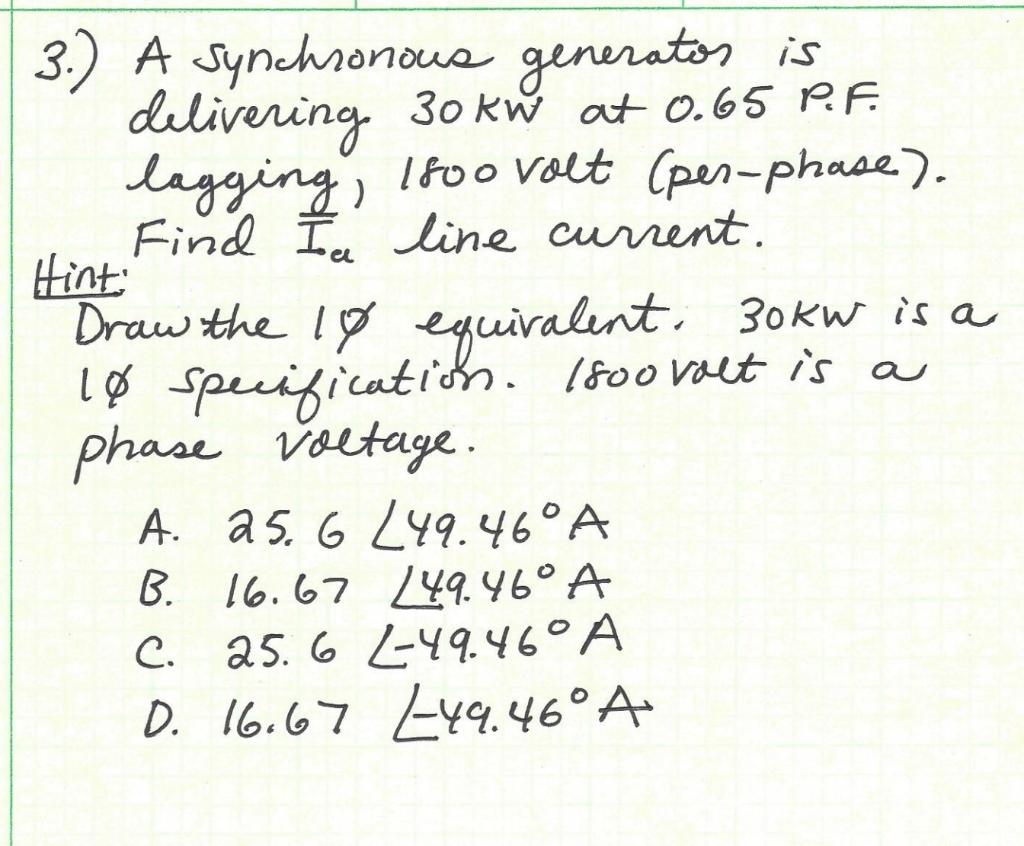 3.) A synchronous generator is
delivering 30 KW at 0.65 P.F.
lagging, 1800 volt (per-phase).
Find Ia line current.
Hint:
Draw the 1Ø equivalent. 30KW is a
1Ø specification. 1800 volt is a
phase voltage.
A. 25.6 ∠49.46° A
B. 16.67 ∠49.46° A
C. 25.6 ∠-49.46° A
D. 16.67 ∠-49.46° A